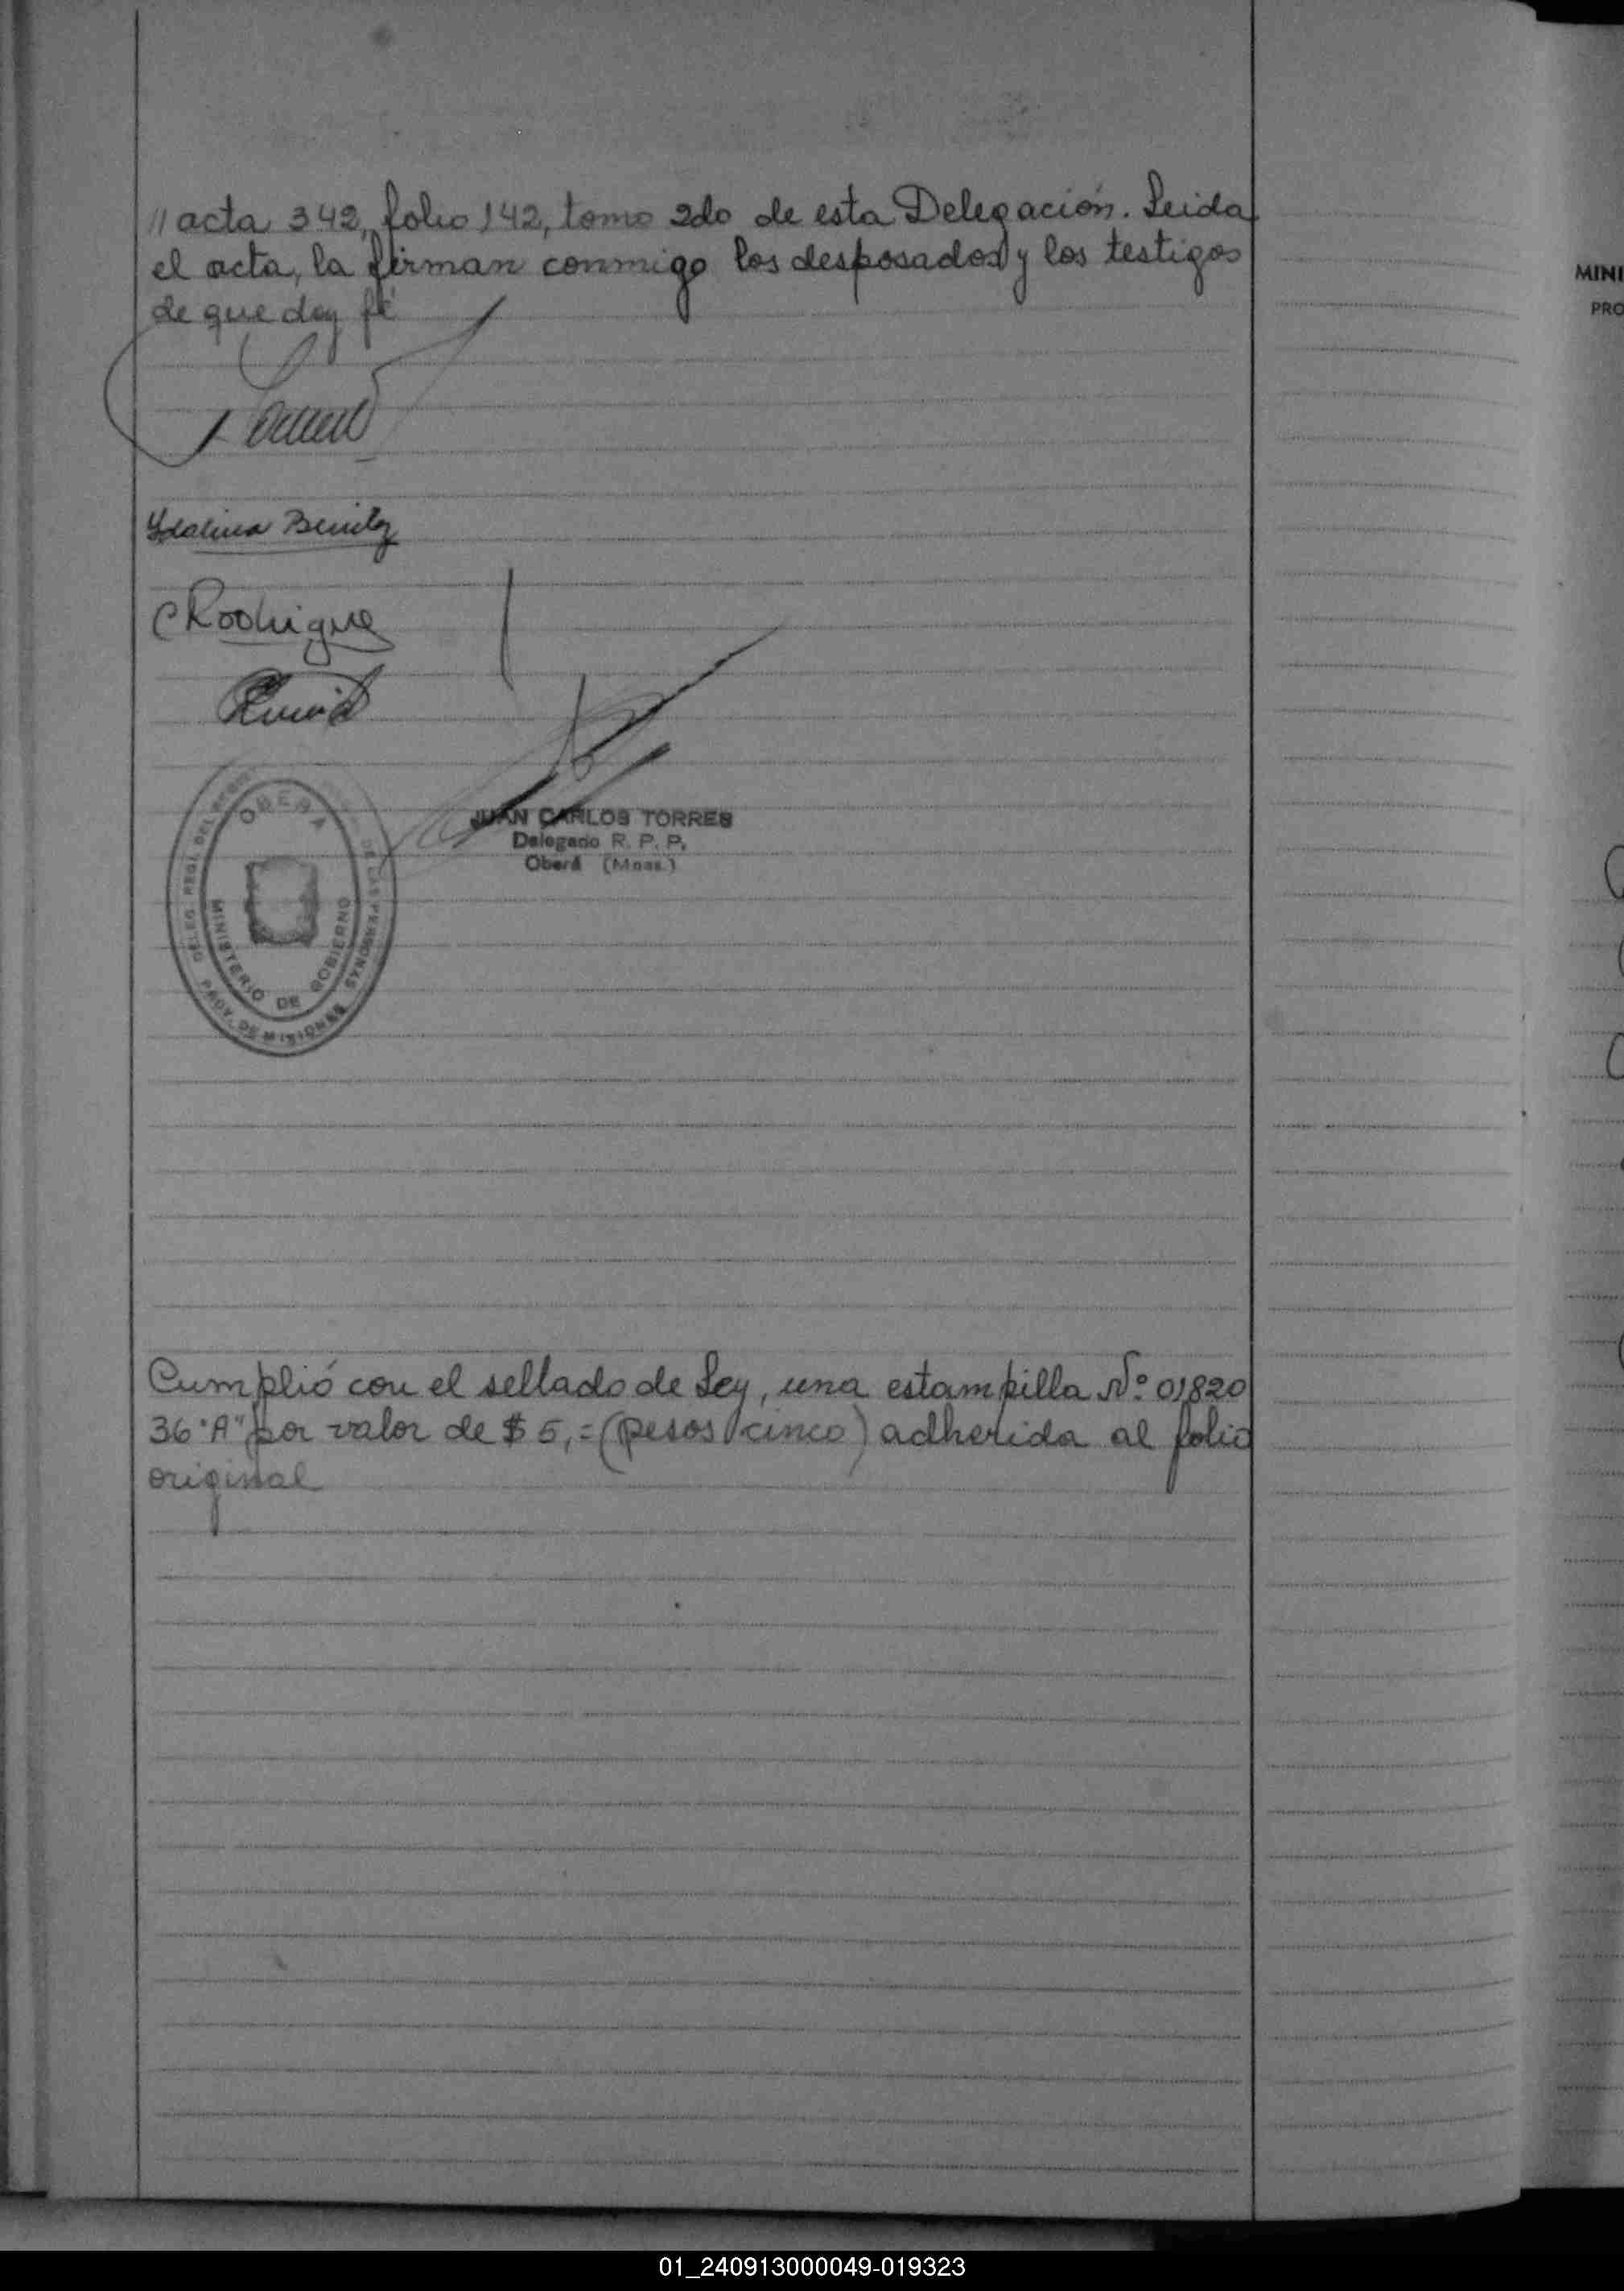 // acta 342, folio 142, tomo 2do de esta Delegación. Leida
el acta, la firman conmigo los desposados y los testigos
de que doy fé
Ydalina Benitez
CRodrigue
OBERA
MINISTERIO DE GOBIERNO
DELEG. REGL. DEL DE LAS PERSONAS
PROV. DE MISIONES
JUAN CARLOS TORRES
Delegado R. P. P.
Oberá (Mnes.)
Cumplió con el sellado de Ley, una estampilla Nº 01820
36 "A" por valor de $ 5,= (pesos cinco) adherida al folio
original
MINI
PRO
01_240913000049-019323